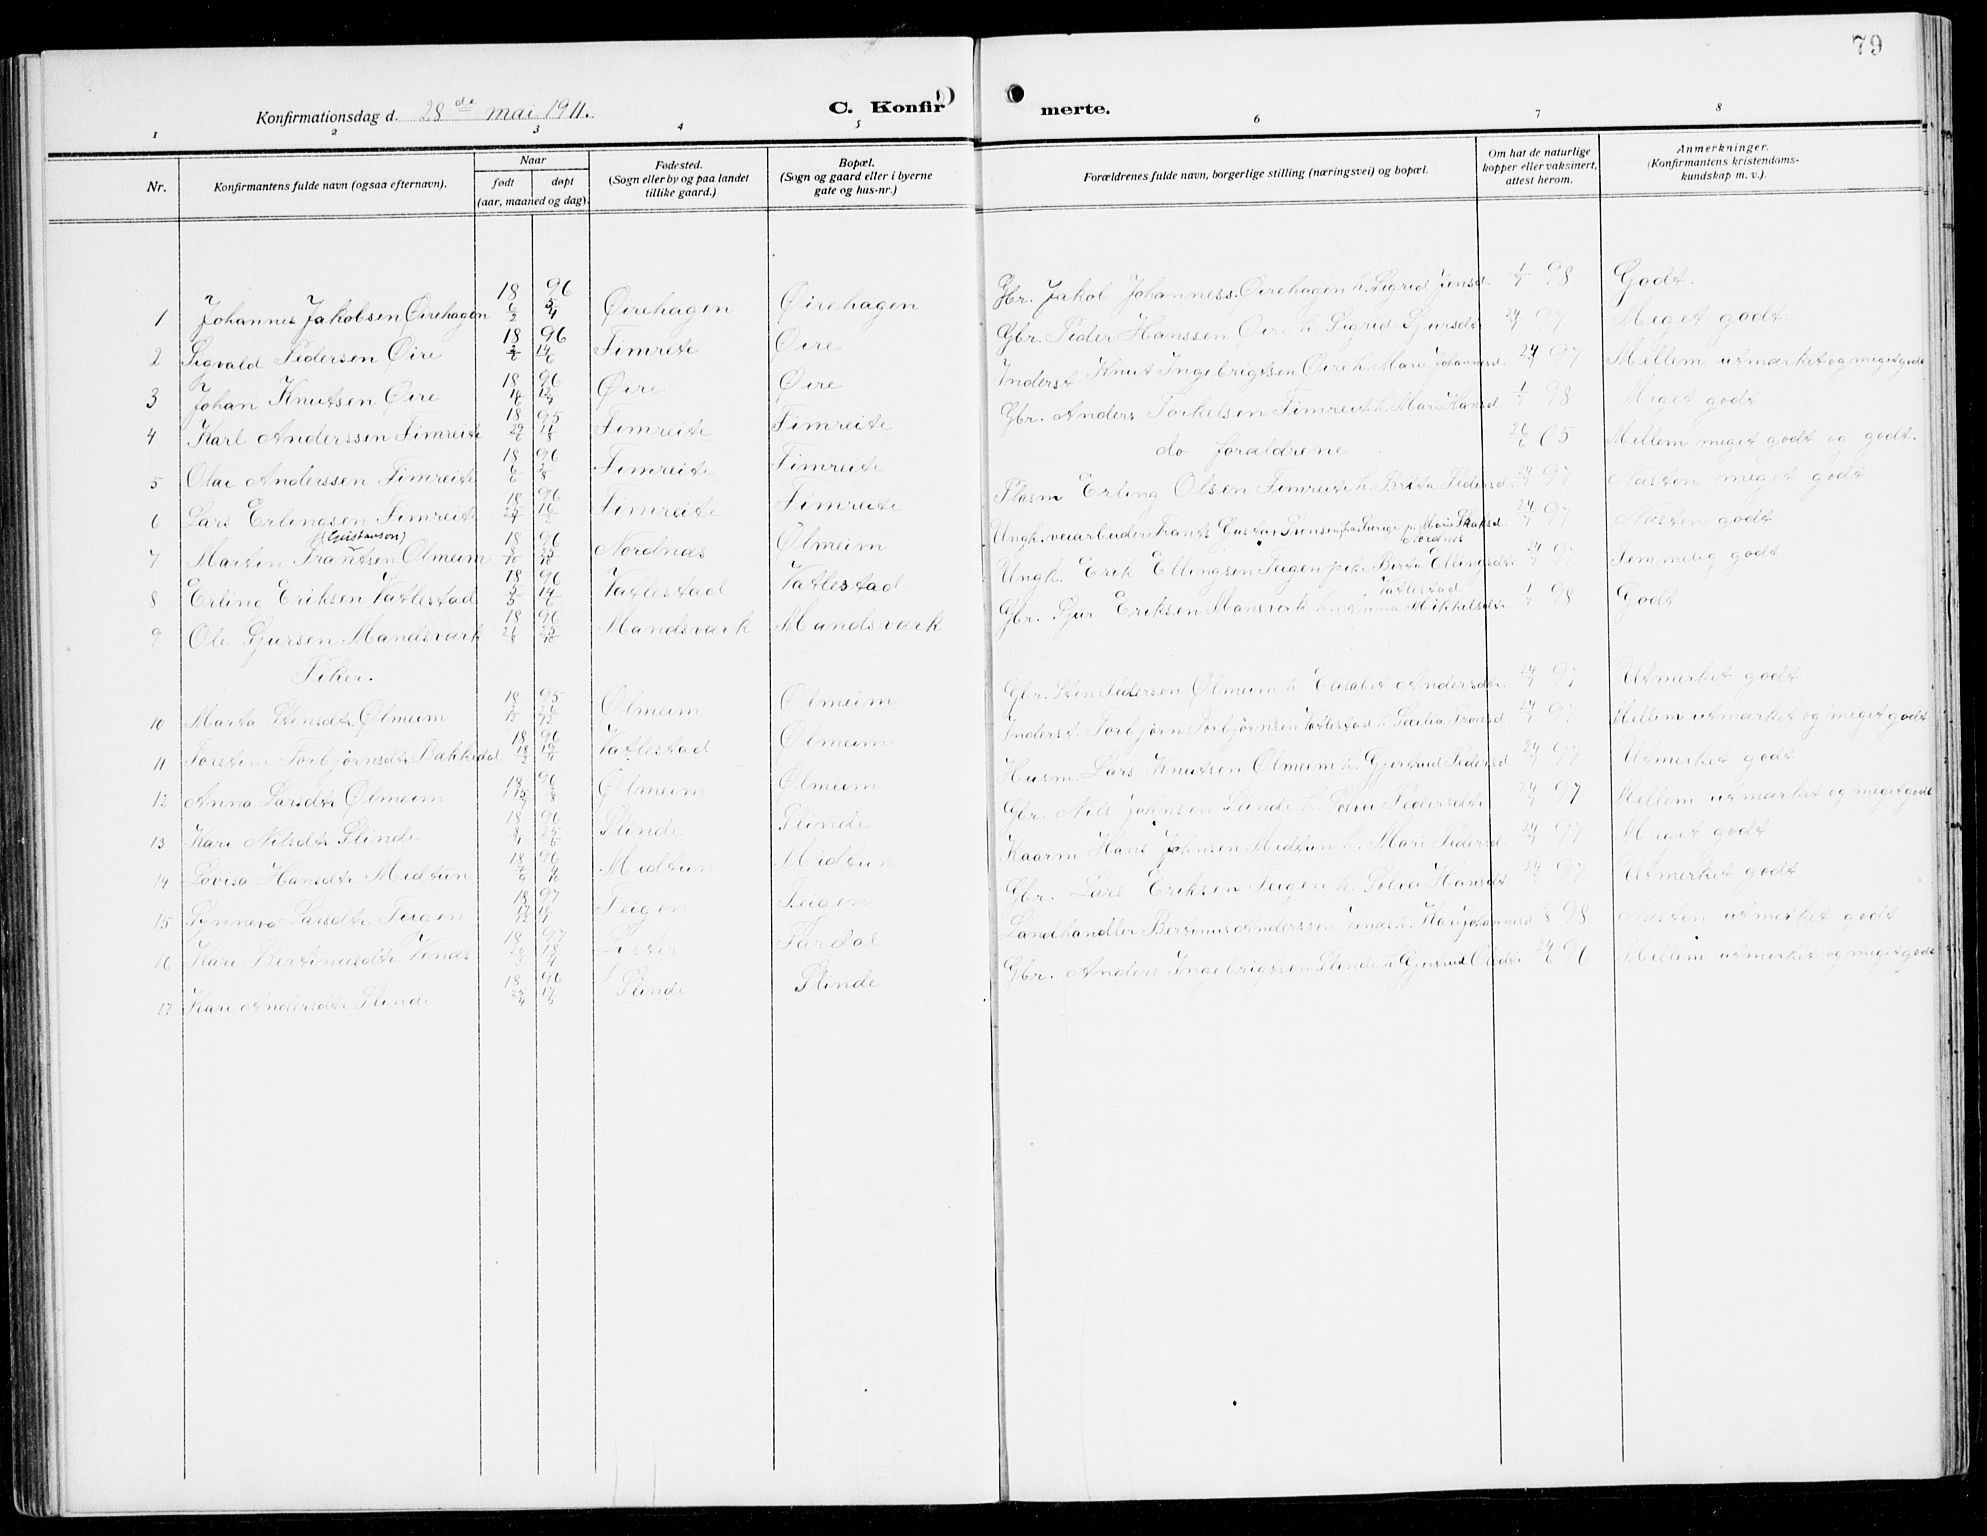 79
Konfirmationsdag d. 28de mai 1911.
C. Konfirmerte.
1 2 3 4 5 6 7 8
Nr.
Konfirmantens fulde navn (ogsaa efternavn).
Naar
født døpt
(aar, maaned og dag).
Fødested.
(Sogn eller by og paa landet
tillike gaard.)
Bopæl.
(Sogn og gaard eller i byerne
gate og hus-nr.)
Forældrenes fulde navn, borgerlige stilling (næringsvei) og bopæl.
Om hat de naturlige
kopper eller vaksinert,
attest herom.
Anmerkninger.
(Konfirmantens kristendoms-
kundskap m. v.).
1 Johannes Jakobsen Øirehagen 18 96 6/2 5/4 Øirehagen Øirehagen Gbr. Jakob Johanness. Øirehagen h. Sigrid Jensd. 1/7 98 Godt.
2 Sigvald Pedersen Øire 18 96 14/6 Fimrete Øire Gbr. Peder Hanssen Øire h. Sigrid Sjursdt. 24/7 97 Meget godt.
3 Johan Knutsen Øire 18 96 Øire Øire Inderst Knut Ingebrigtsen Øire h. Mari Johannesd. 24/7 97 Mellem utmærket og meget godt
4 Karl Anderssen Fimreite 18 95 29/6 11/8 Fimreite Fimreite Gbr. Anders Torkelsen Fimreite h. Mari Hansd 1/7 98 Meget godt
5 Olai Anderssen Fimreite 18 96 Fimreite Fimreite do forældrene 26/6 05 Mellem meget godt og godt.
6 Lars Erlingsen Fimreite 18 96 Fimreite Fimreite Plasm Erling Olsen Fimreite h. Brita Pedersd. 24/7 97 Næsten meget godt
(Gustavson)
7 Martin Frantsen Ølmeim 18 96 8/10 25/10 Nordnæs Ølmeim Ungk. veiarbeider Frants Gustav Svensen fra Sverige p. Marie Nordnes 24/7 97 Næsten godt
8 Erling Eriksen Vatlestad 18 96 5/5 14/6 Vatlestad Vatlestad Ungk. Erik Ellingsen Teigen pike Birte Ellingsdt. Vatlestad 24/7 97 Temmelig godt
9 Ole Sjursen Mandsværk 18 96 25/10 Mandsværk Mandsværk Gbr. Sjur Eriksen Mansverk h. Anna Mikkelsdt. 1/7 98 Godt.
Piker.
10 Marta Stensdtr Ølmeim 18 95 Ølmeim Ølmeim Gbr. Sten Pedersen Ølmeim h. Elisabet Andersdtr. 24/7 97 Utmerket godt
11 Torstine Torbjørnsdtr Bakkedal 18 96 18/2 19/4 Vatlestad Ølmeim Inderst. Torbjørn Torbjørnsen Vatlestad h. Sesilia 24/7 97 Mellem utmærket og meget godt
12 Anna Larsdtr Ølmeim 18 96 Ølmeim Ølmeim Husm. Lars Knutsen Ølmeim h. Gjertrud Pedersd 24/7 97 Utmerket godt
13 Kari Nilsdtr Slinde 18 96 8/4 25/5 Slinde Slinde Gbr. Nils Johnsen Slinde h. Sølvi Pedersdtr 24/7 97 Mellem utmærket og meget godt
14 Lovisa Hansdtr Midtun 18 96 Midtun Midtun Kaarm Hans Johnsen Midtun h. Mari Pedersd 24/7 97 Meget godt
15 Synneva Larsdtr Teigen 18 97 Teigen Teigen Gbr. Lars Eriksen Teigen h. Sølvi Hansdt 24/7 97 Utmerket godt
16 Kari Bertinusdtr Venæs 18 97 18/4 Lister Fardal Landhandler Bertinus Anderssen Venæs h. Kari Johannesd 98 Næsten utmerket godt
17 Kari Andersdtr Slinde 18 96 25/4 17/5 Slinde Slinde Gbr. Anders Ingebrigtsen Slinde h. Gjertrud Olsdtr 24/6 96 Mellem utmerket og meget godt